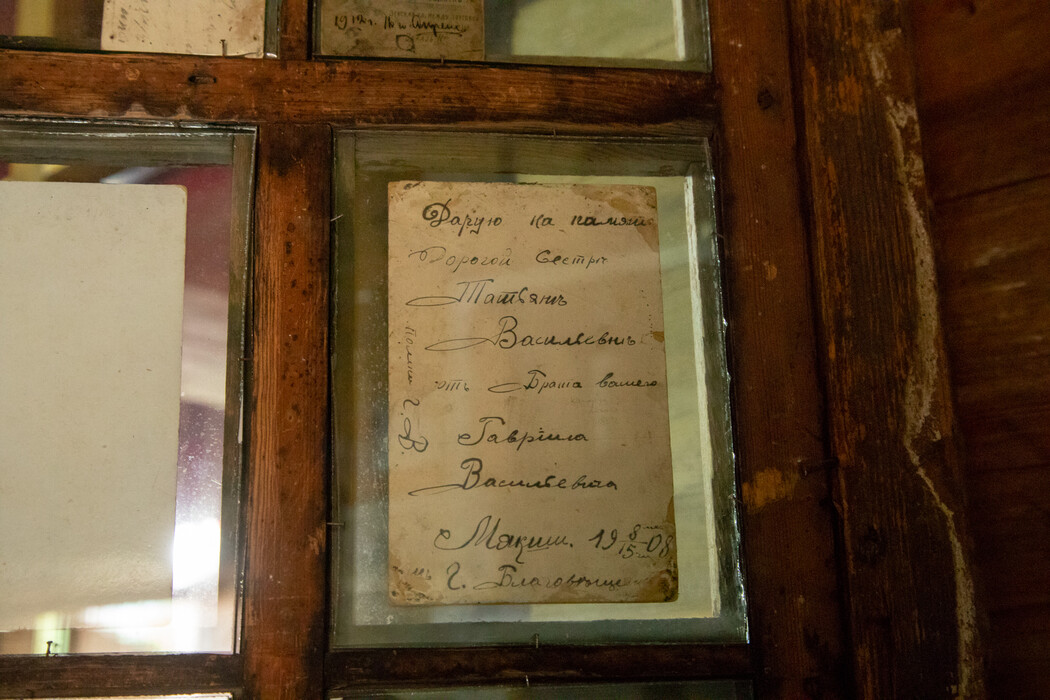 1912 г.
Дарую на память
Дорогой Сестрѣ
Татьянѣ
Васильевнѣ
отъ Брата вашего
Гавріила
Васильевича
19 8/15 08
г. Благовѣще
Г. В.